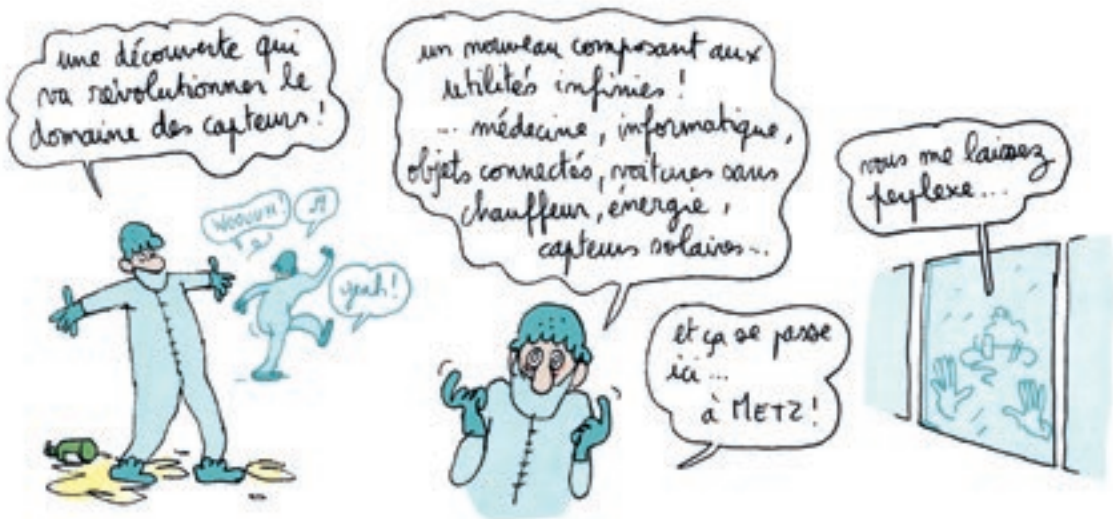 une découverte qui
va révolutionner le
domaine des capteurs!
WOOUUH!
yeah!
un nouveau composant aux
utilités infinies!
... médecine, informatique,
objets connectés, voitures sans
chauffeur, énergie,
capteurs solaires...
et ça se passe
ici...
à METZ!
vous me laissez
perplexe...